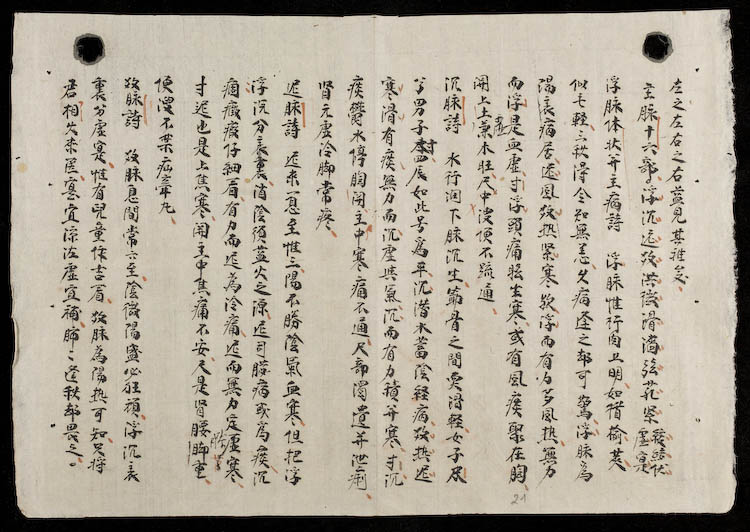 左之左右之右益見其推矣
主脉十六部浮沉遲数洪微滑濇弦芤緊
緩結伏
虛實
浮脉体状并主病詩 浮脉惟行肉上明如楷榆荚
似毛輕三秋得令知無恙久病逢之却可驚浮脉為
陽表病居遲風数热緊寒拘浮而有力多風热無力
而浮是血虛寸浮頭痛眩生寒或有風痰聚在胸
関上土虛兼木旺尺中溲便不疏通
沉脉詩 水行潤下脉沉生筋骨之間耎滑輕女子尺
兮男子寸四辰如此号為平沉潜水蓄陰経病数热遲
寒滑有痰無力而沉虛與氣沉而有力積并寒寸沉
痰鬱水停胸関主中寒痛不通尺部濁遺并泄痢
腎元虛冷脚常疼
遲脉詩 遲来一息至惟三陽不勝陰氣血寒但把浮
沉分表裏消陰須益火之源遲司臟病或為痰沉
痼癥瘕仔細看有力而遲為冷痛遲而無力定虛寒
寸遲也是上焦寒関主中焦痛不安尺是腎腰脚重
便溲不禁疝牽丸
数脉詩 数脉息間常六至陰微陽盛必狂煩浮沉表
裏分虛寔惟有兒童作吉看数脉為陽热可知只将
君相火来医寔宜涼冷虛宜補肺〻逢秋却畏之
21